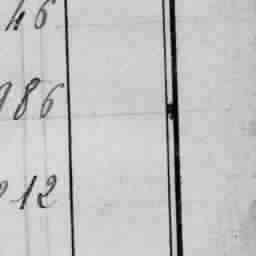 46
86
12